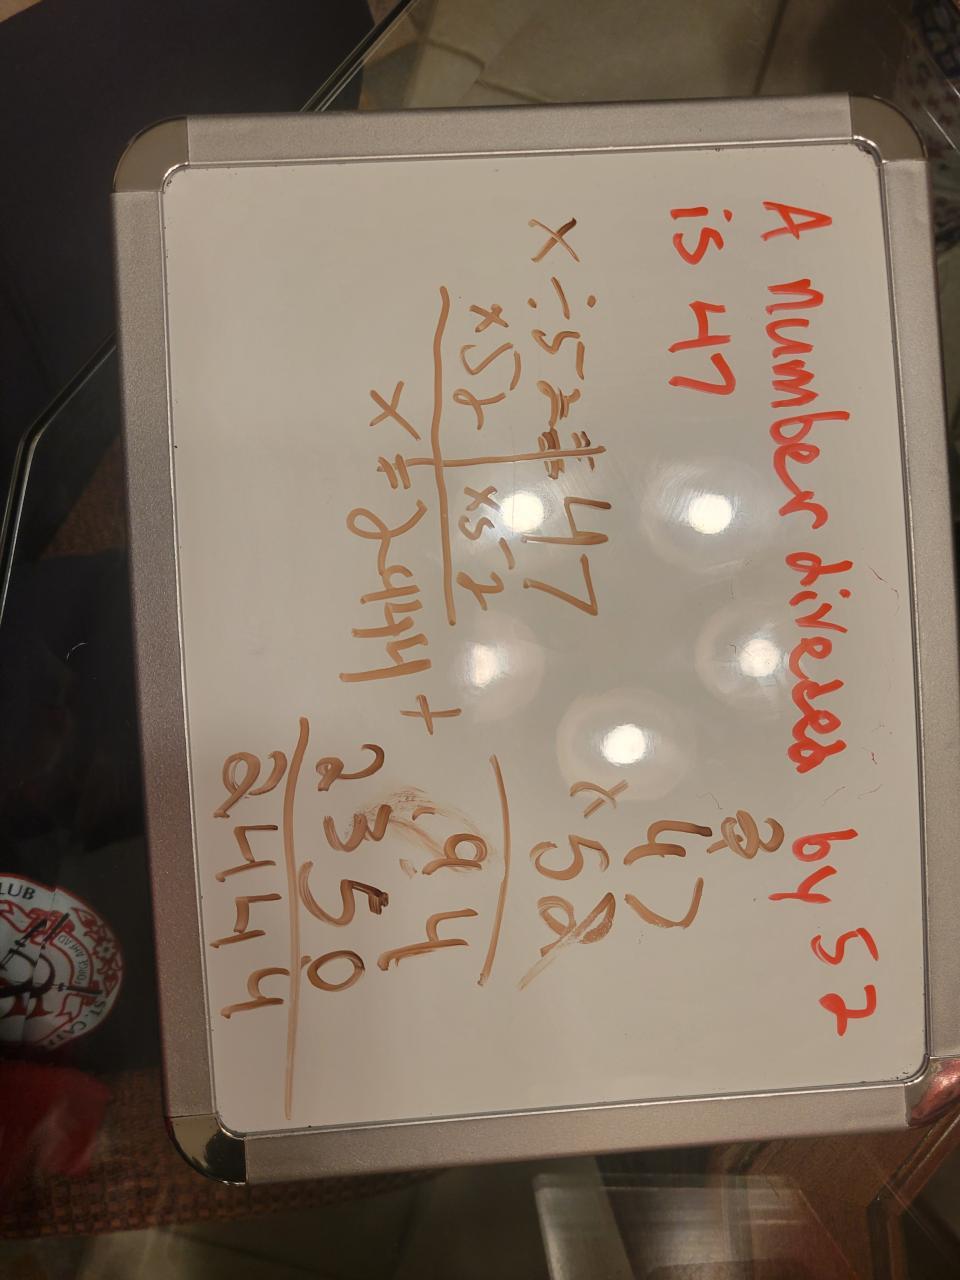 A number diveded by 52
is 47
x ÷ 52 = 47
x52 x52
x = 2444
3
47
x 52
94
+ 2350
2444
LUB
ST. CAT